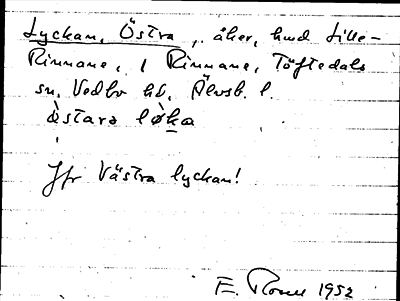 Lyckan, Östra, åker, hmd Lille-
Rinnane, 1 Rinnane, Töftedals
sn, Vedbo hd, Älvsb. l.
östara løka
Jfr Västra lyckan!
E. 1952